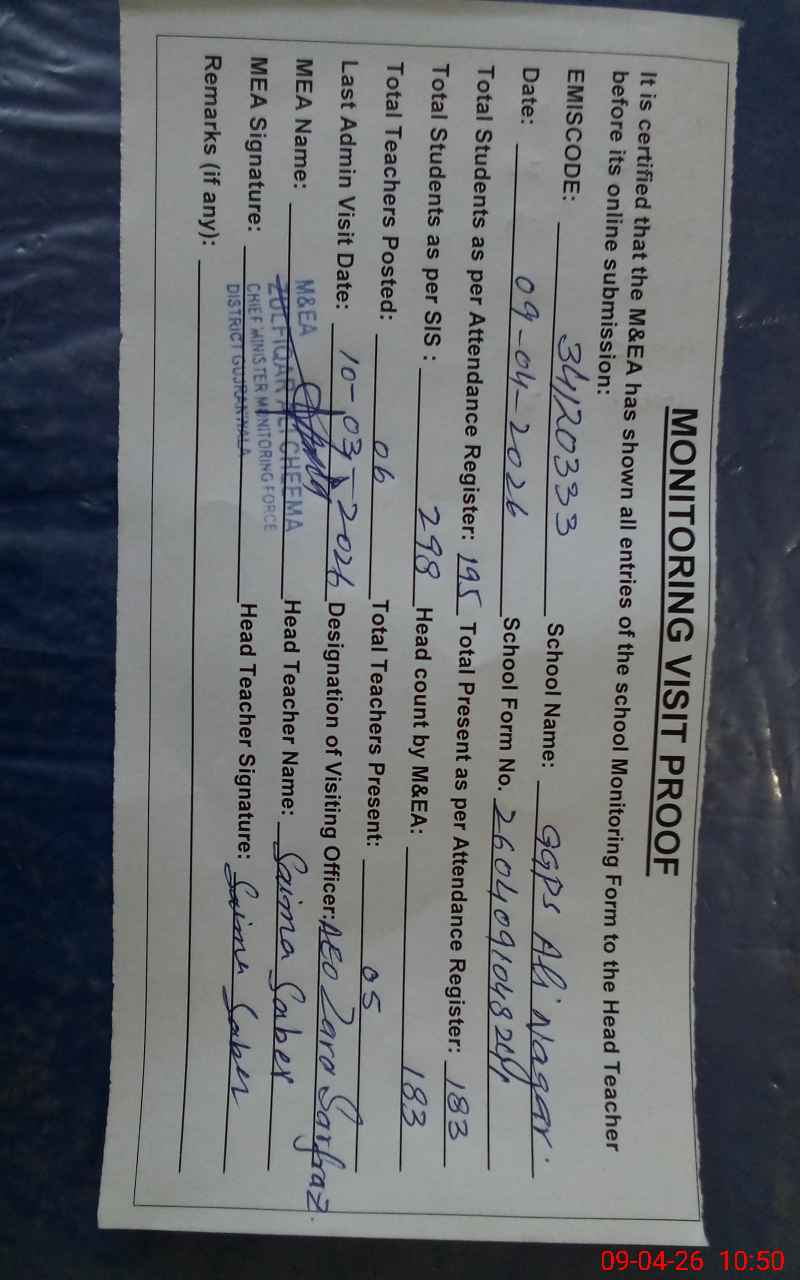 MONITORING VISIT PROOF
It is certified that the M&EA has shown all entries of the school Monitoring Form to the Head Teacher
before its online submission:
EMISCODE: 34120333 School Name: GGPS Ali Nagar.
Date: 09-04-2026 School Form No. 260409104824
Total Students as per Attendance Register: 195 Total Present as per Attendance Register: 183
Total Students as per SIS : 298 Head count by M&EA: 183
Total Teachers Posted: 06 Total Teachers Present: 05
Last Admin Visit Date: 10-03-2026 Designation of Visiting Officer: AEO Zara Sarfraz.
MEA Name: Head Teacher Name: Saima Saber
MEA Signature: Head Teacher Signature: Saima Saber
M&EA
ZULFIQAR ALI CHEEMA
CHIEF MINISTER MONITORING FORCE
DISTRICT GUJRANWALA
Remarks (if any):
09-04-26 10:50